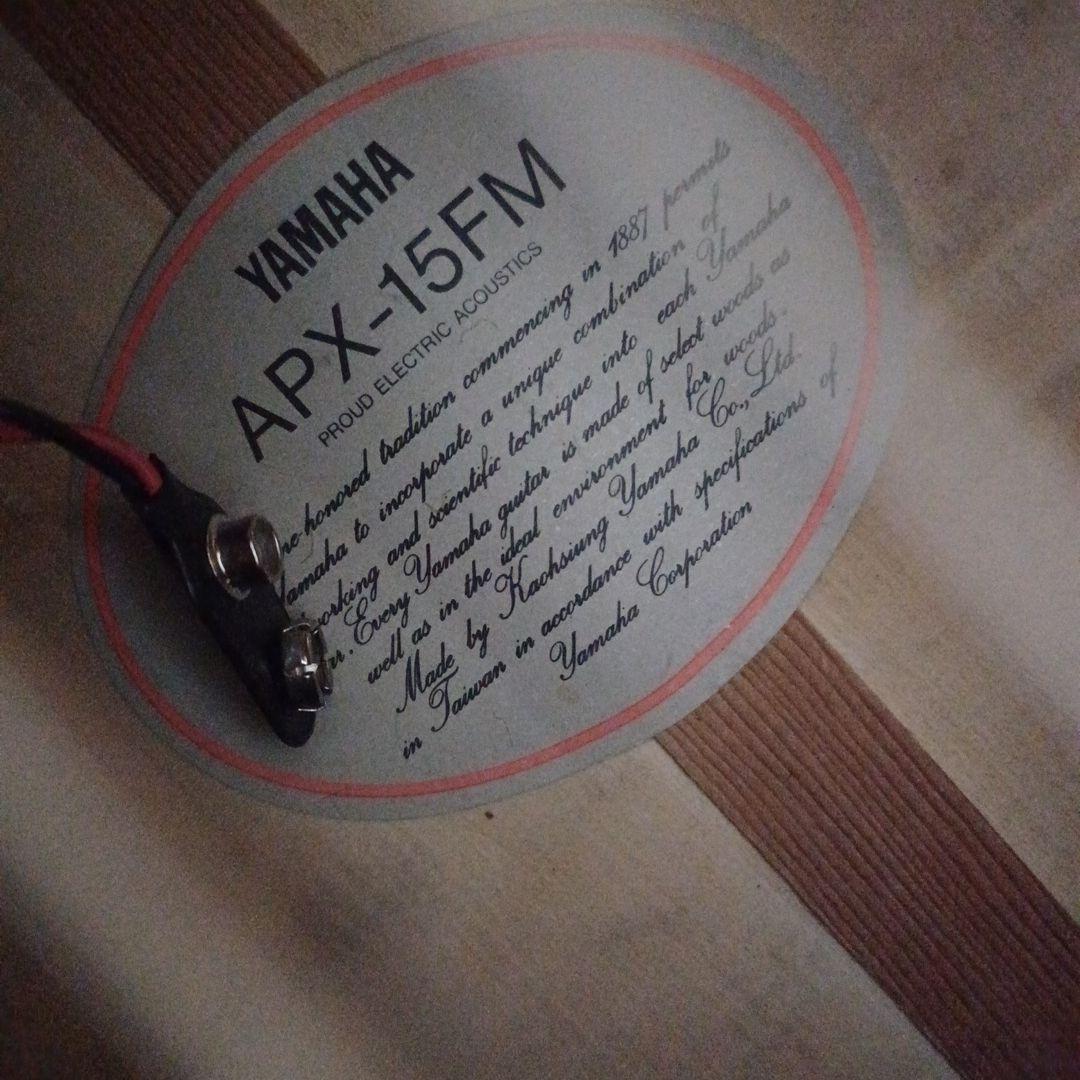 YAMAHA
APX-15FM
PROUD ELECTRIC ACOUSTICS
me-honored tradition commencing in 1887 permits
Yamaha to incorporate a unique combination of
working and scientific technique into each Yamaha
ar. Every Yamaha guitar is made of select woods as
well as in the ideal environment for woods.
Made by Kaohsiung Yamaha Co., Ltd.
in Taiwan in accordance with specifications of
Yamaha Corporation